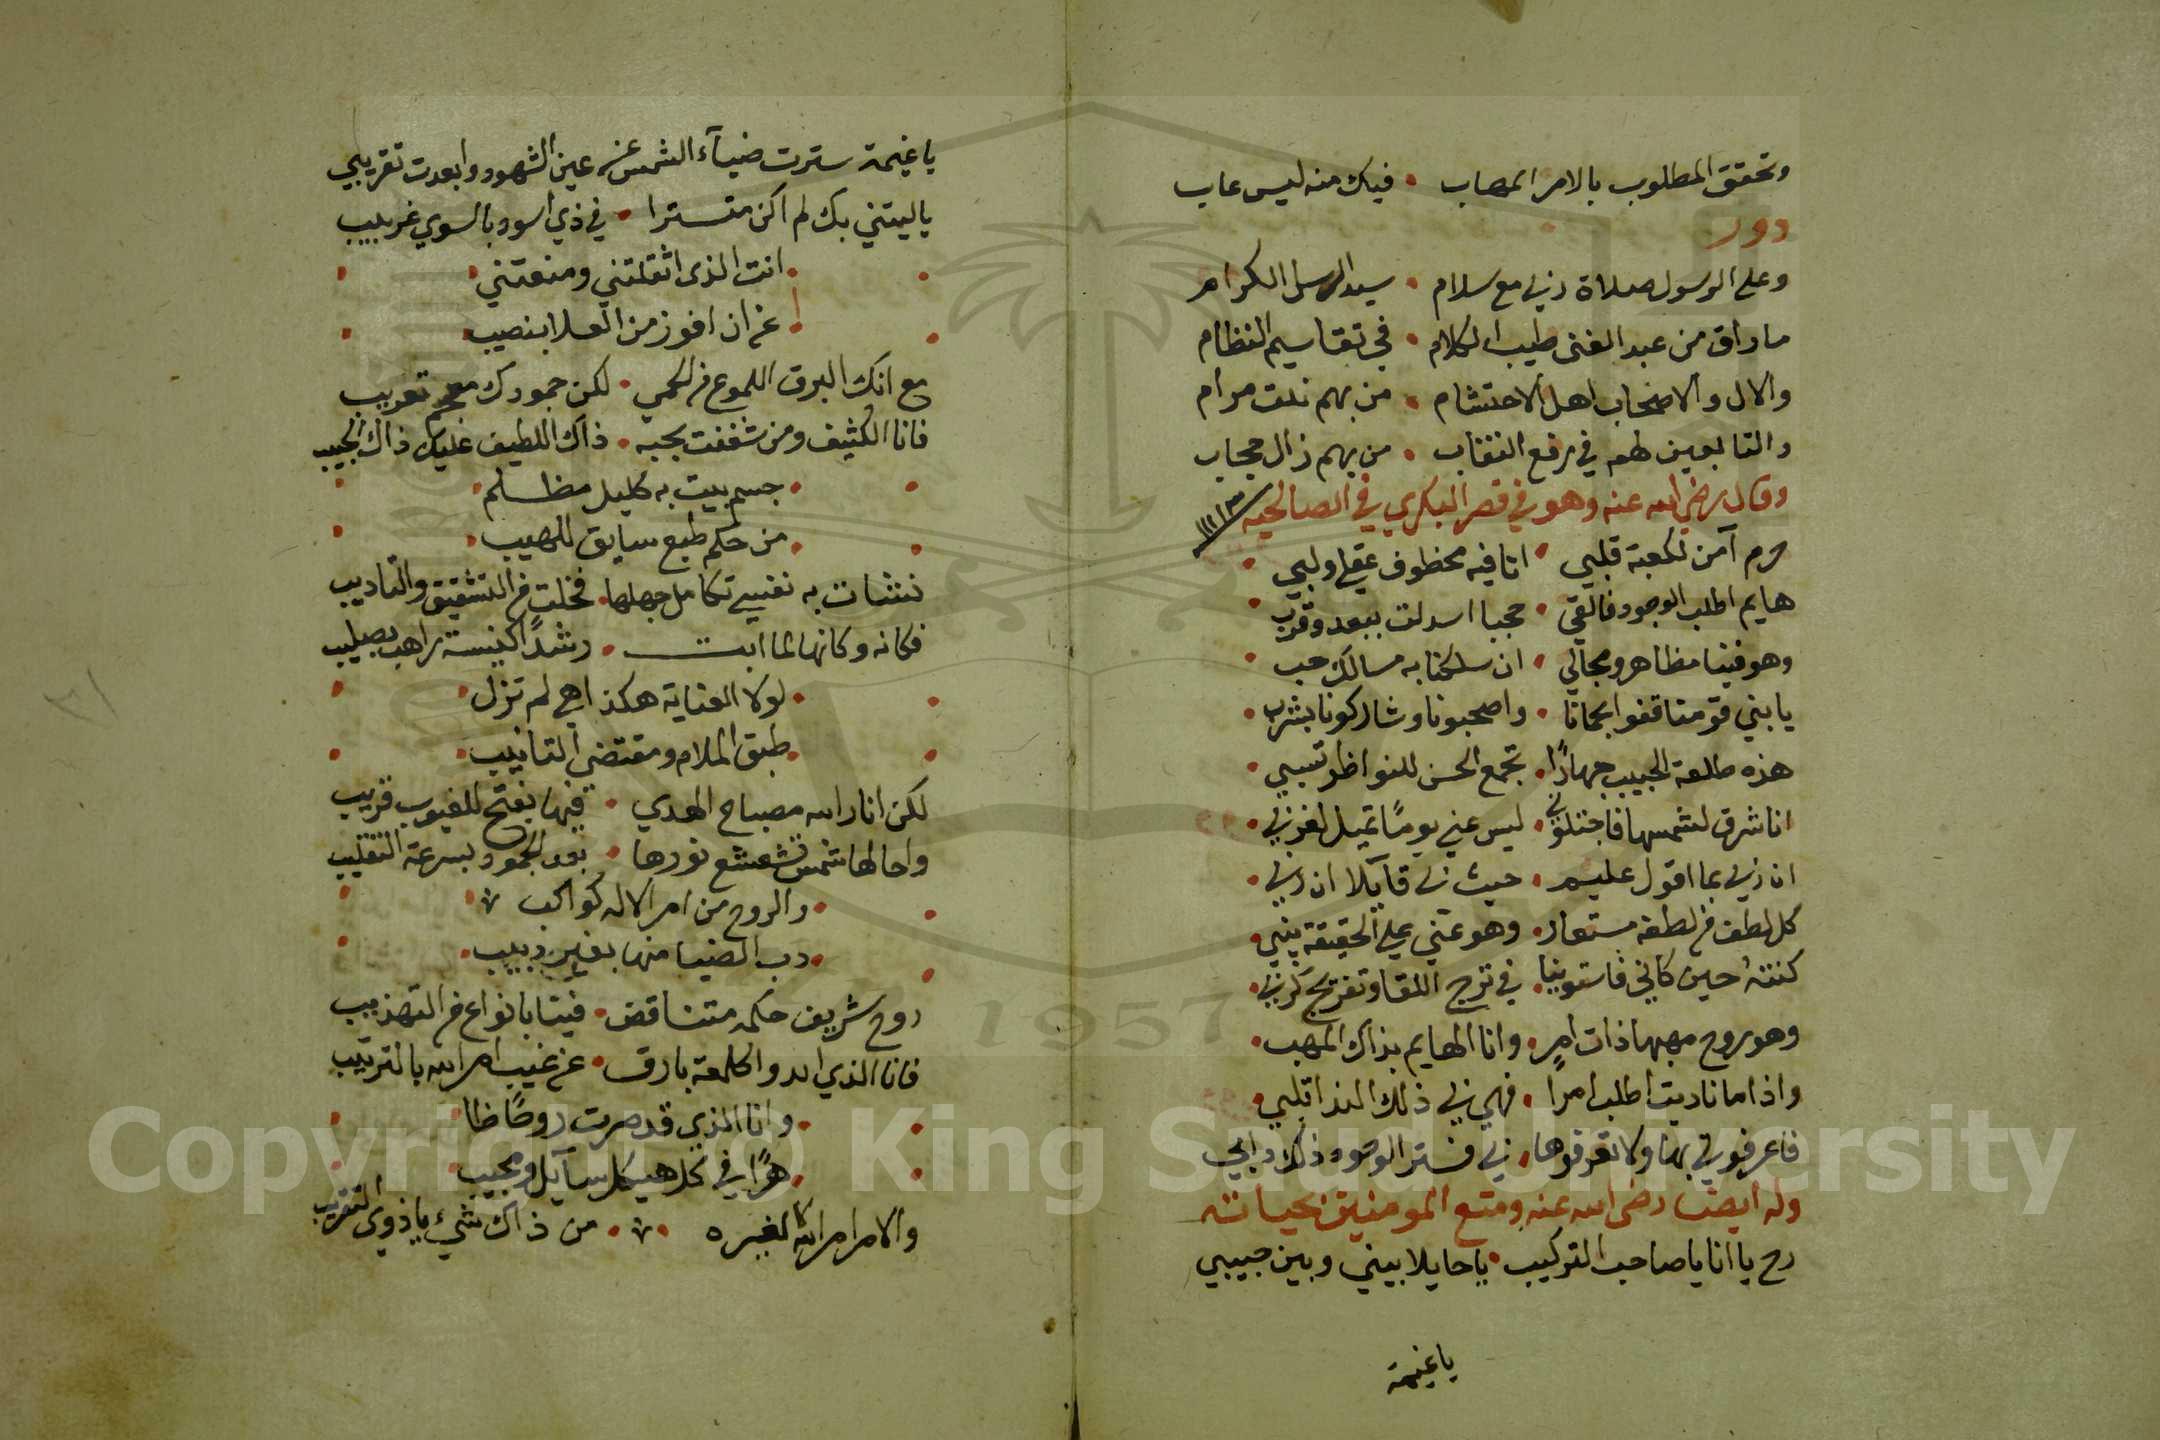 وتحقق المطلوب بالامر المهاب • فيك منه ليس عاب
دور
وعلى الرسول صلاة ربي مع سلام • سيد الرسل الكرام
ما راق من عبد الغنى طيب الكلام • في تقاسيم النظام
والال والاصحاب اهل الاحتشام • من بهم نلت مرام
والتابعين لهم في رفع النقاب • من بهم زال حجاب
وقال رضي الله عنه وهو في قصر البكري في الصالحيه سنة ١١١٣
حرم آمن لكعبة قلبي • انا فيه مخطوف عقلي ولبي •
هايم اطلب الوجود فالقي • حجبا اسدلت ببعد وقرب •
وهو فينا مظاهر ومجالي • ان سلكنا به مسالك حب •
يا بني قومنا قفوا بحمانا • واصحبونا وشاركونا بشرب •
هذه طلعة الحبيب جهارًا • تجمع الحسن للنواظر تسبي •
انا شرق لشمسها فاجتلوني • ليس عني يومًا تميل لغربي •
ان ربي بما اقول عليم • حيث بي قآيلا ان ربي •
كل لطف من لطفه مستعار • وهو عني علي الحقيقة ينبي •
كنته حين كانني فاستوينا • في ترجي اللقا وتفريج كربي •
وهو روح مهبها ذات امر • وانا الهايم بذاك المهب •
واذا ما ناديت اطلب امرًا • فهي بي ذلك الندا تلبي •
فاعرفوني بها ولا تعرفوها • بي فستر الوجوه ذلك دابي
وله ايضا رضى الله عنه ومتع المومنين بحياته
رح يا انا يا صاحب التركيب • يا حايلا بيني وبين حبيبي
يا غيمة
يا غيمة سترت ضيآء الشمس عن عين الشهود وابعدت تقريبي
يا ليتني بك لم اكن متسترا • في ذي اسود بالسوي غربيب
• انت الذى اثقلتني ومنعتني •
• عن ان افوز من العلا بنصيب
مع انك البرق اللموع من الحمي • لكن جمودك معجم تعريب
فانا الكثيف ومن شغفت بحبه • ذاك اللطيف عليك ذاك الجيب
• جسم بيت به كليل مظلم •
• من حكم طبع سايق للهيب •
نشات به نفسي تكامل جهلها • فخلت من التشقيق والتاديب
فكانه وكانها لما ابت • رشدًا كنيسة راهب بصليب
• لولا العناية هكذا هي لم تزل •
• طبق الملام ومقتضي التانيب •
لكن انار الله مصباح الهدي • فيها بفتح للغيوب قريب
واحالها شمس تشعشع نورها • بعد الجمود بسرعة التقليب
• والروح من امر الاله كواكب •
• دب الضيا منها بغير دبيب •
روح شريف حكمه متناقض • فينا بانواع من التهذيب
فانا الذي ابدو كلمعة بارق • عن غيب امر الله بالترتيب
• وانا الذي قد صرت روضًا ظاهرًا
• في كل هيكل سآيل ومجيب
والامر امر الله لا لغيره • من ذاك شيء يا ذوي التقريب